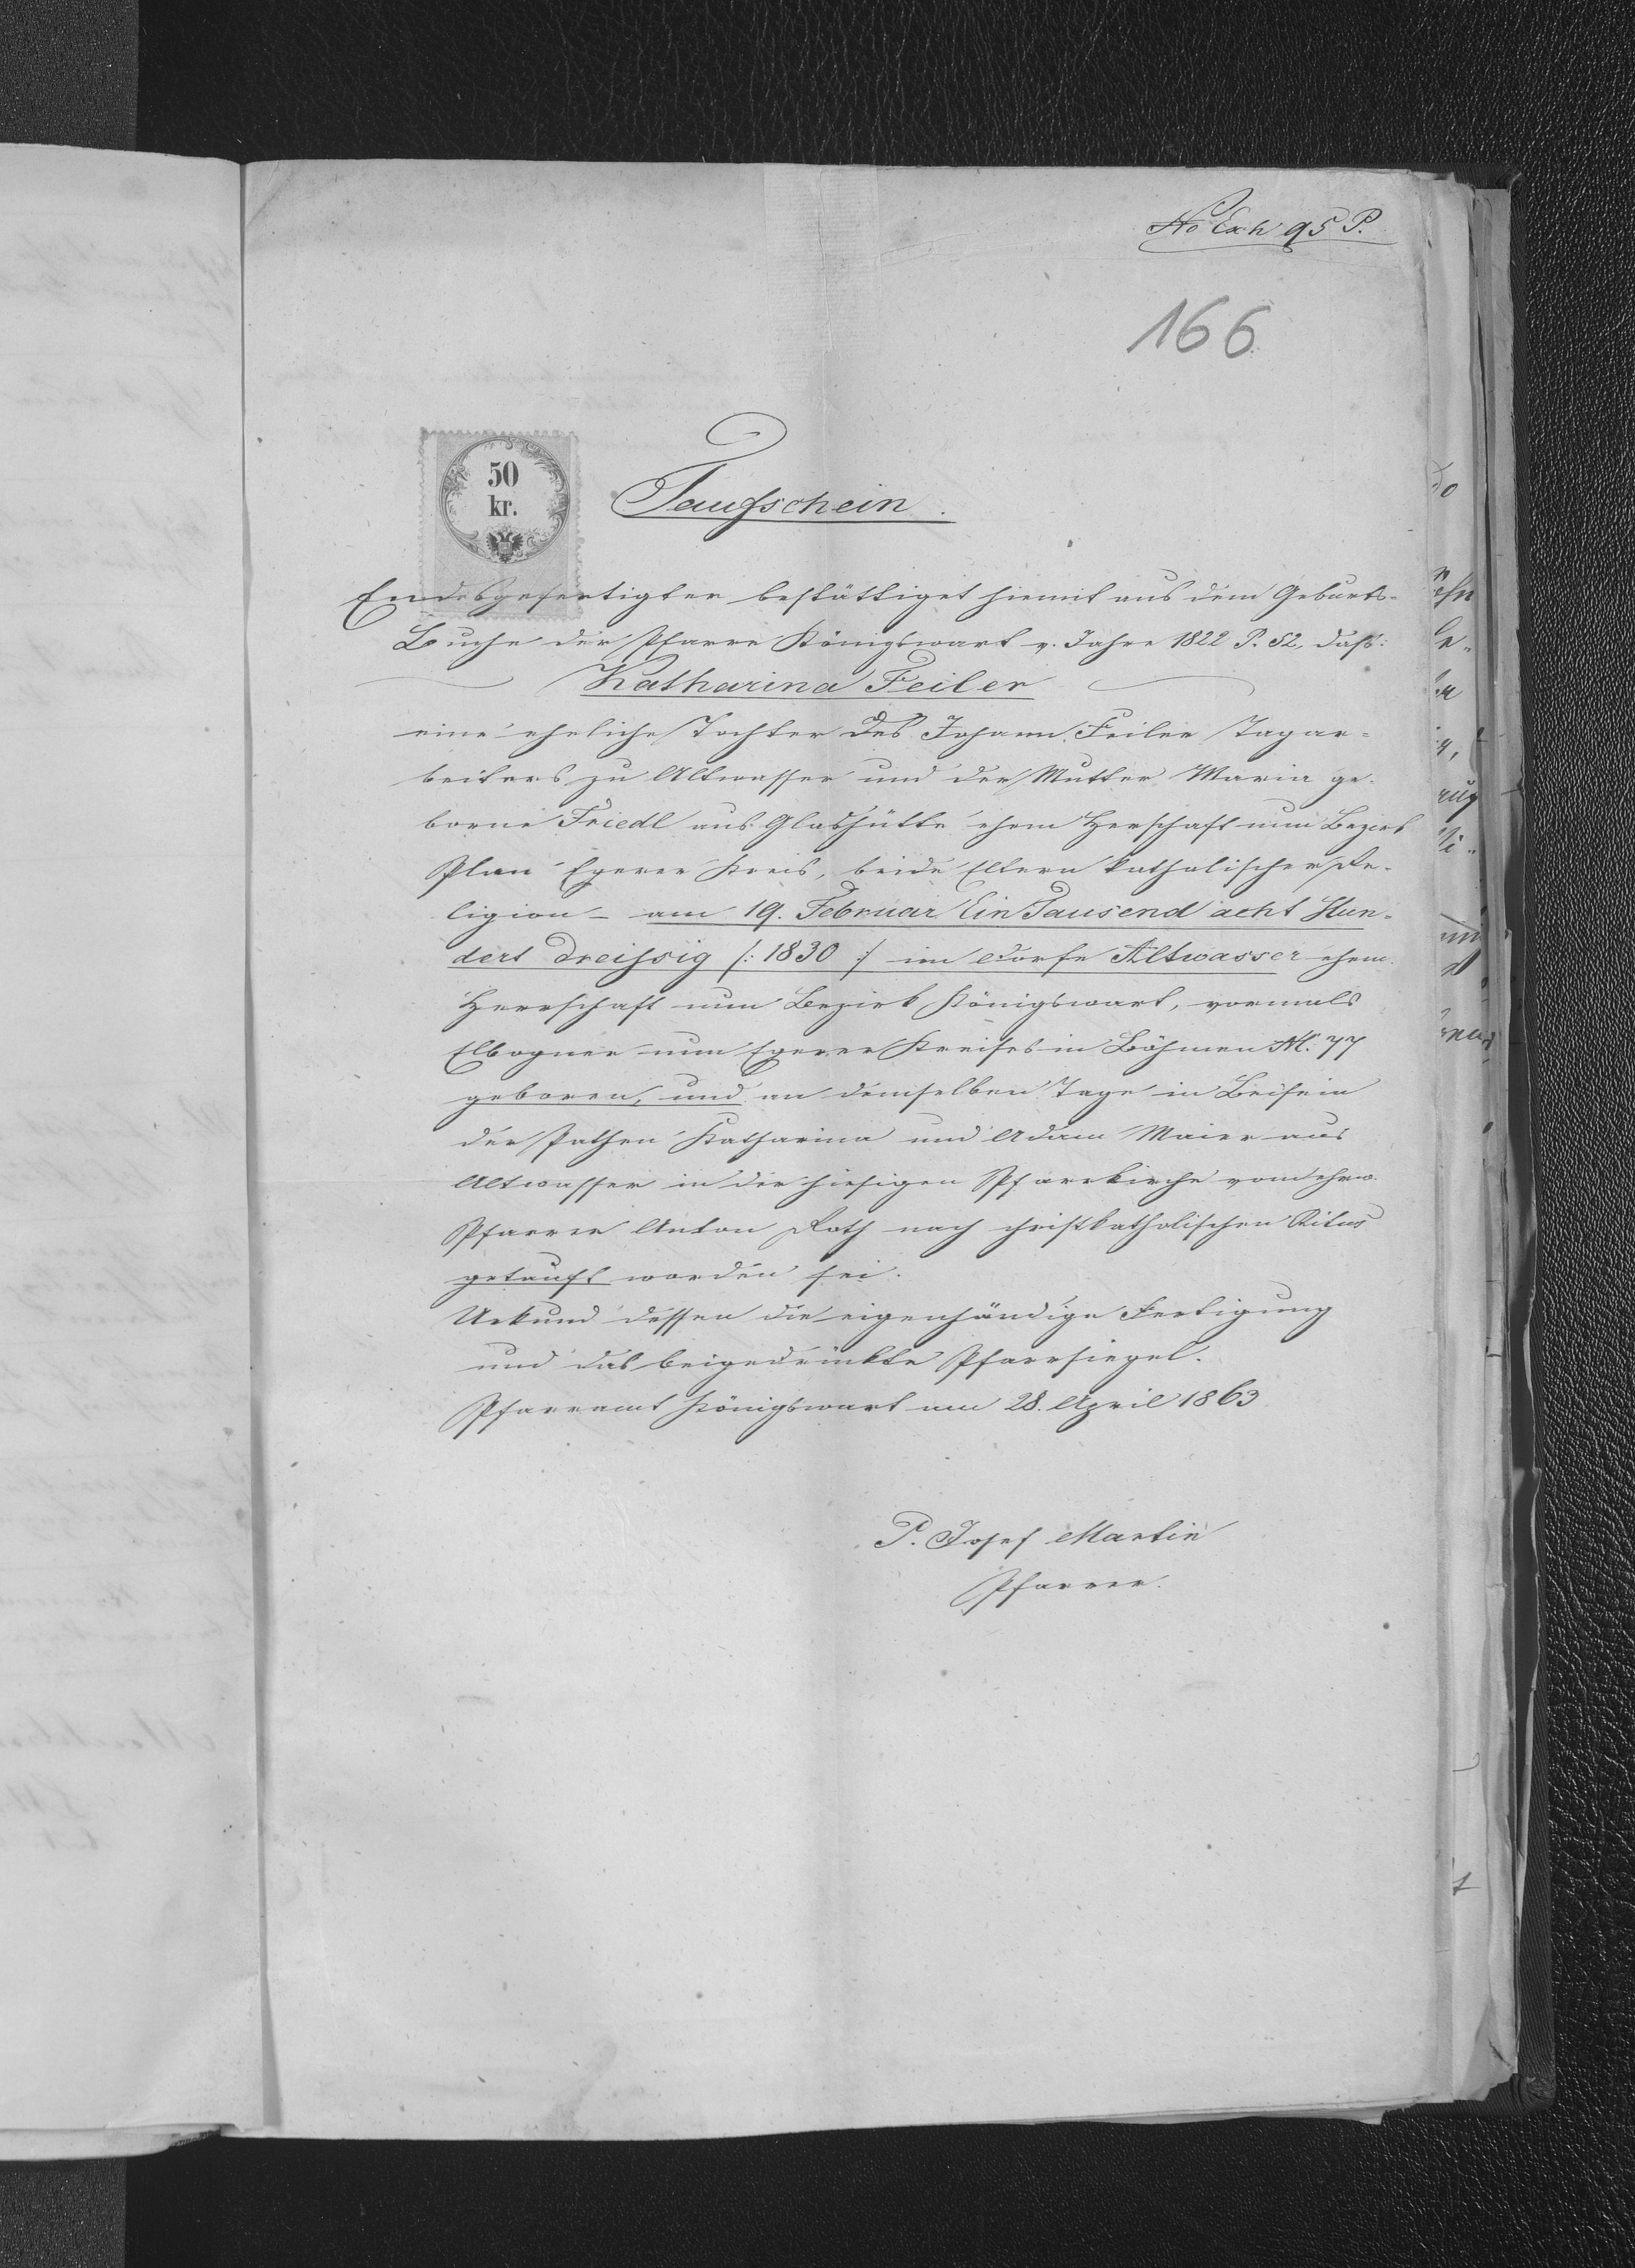 No Exh 95 P.
166
50
kr.
Taufschein.
Endesgefertigter bestättiget hiemit aus dem Geburts-
Buche der Pfarre Königswart v. Jahre 1822 P. 52, daß:
Katharina Feiler
eine eheliche Tochter des Johann Feiler Tagar=
beiters zu Altwasser und der Mutter Maria ge-
borne Friedl aus Glashütte ehem Herschaft nun Bezirk
Plan Egerer Kreis, beide Eltern katholischer Re-
ligion – am 19. Februar Ein Tausend acht Hun=
dert dreißig /: 1830 :/ im Dorfe Altwasser ehem.
Herrschaft nun Bezirk Königswart, vormals
Elbogner nun Egerer Kreises in Böhmen N. 77
geboren, und an demselben Tage in Beisein
der Pathen Katharina und Adam Maier aus
Altwasser in der hiesigen Pfarrkirche vom ehrw.
Pfarrer Anton Roth nach christkatholischen Ritus
getauft worden sei.
Urkund dessen die eigenhändige Fertigung
und das beigedrückte Pfarrsiegel.
Pfarramt Königswart am 28. April 1863
P. Josef Martin
Pfarrer.